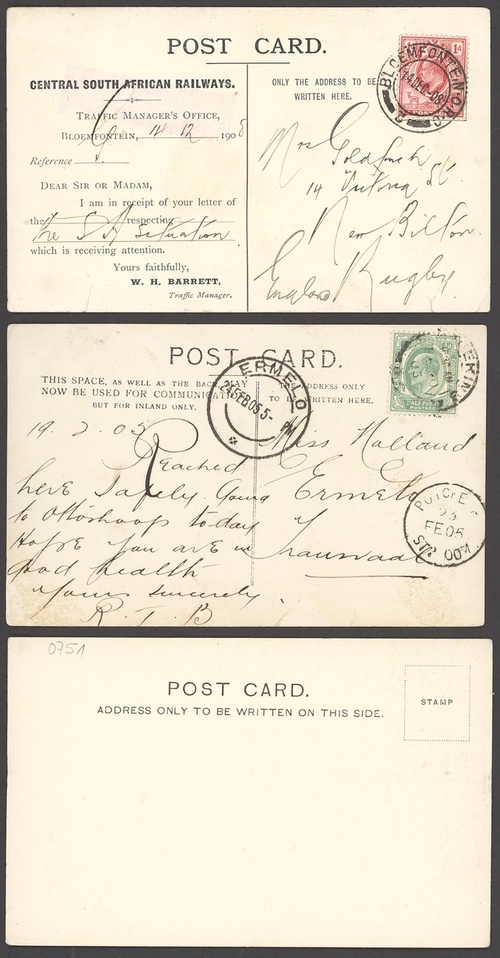 POST CARD.
CENTRAL SOUTH AFRICAN RAILWAYS.
TRAFFIC MANAGER'S OFFICE,
BLOEMFONTEIN, 14. 12 1908
Reference
DEAR SIR OR MADAM,
I am in receipt of your letter of
the respecting
the S A situation
which is receiving attention.
Yours faithfully,
W. H. BARRETT,
Traffic Manager.
ONLY THE ADDRESS TO BE
WRITTEN HERE.
1d
BLOEMFONTEIN O.R.C.
14 DEC 08
Mrs Goldfinch
14 Victoria St
New Bilton
Rugby
England
POST CARD.
THIS SPACE, AS WELL AS THE BACK, MAY
NOW BE USED FOR COMMUNICATION
BUT FOR INLAND ONLY.
THE ADDRESS ONLY
TO BE WRITTEN HERE.
ERMELO
24 FEB 05 5- PM
19. 2. 05
Reached
here safely. Going
to Ottoshoop today
Hope you are in
good health
Yours sincerely.
R. T. B
Miss Holland
Ermelo
Transvaal
POSTAGE
FE 05
POST CARD.
ADDRESS ONLY TO BE WRITTEN ON THIS SIDE.
STAMP